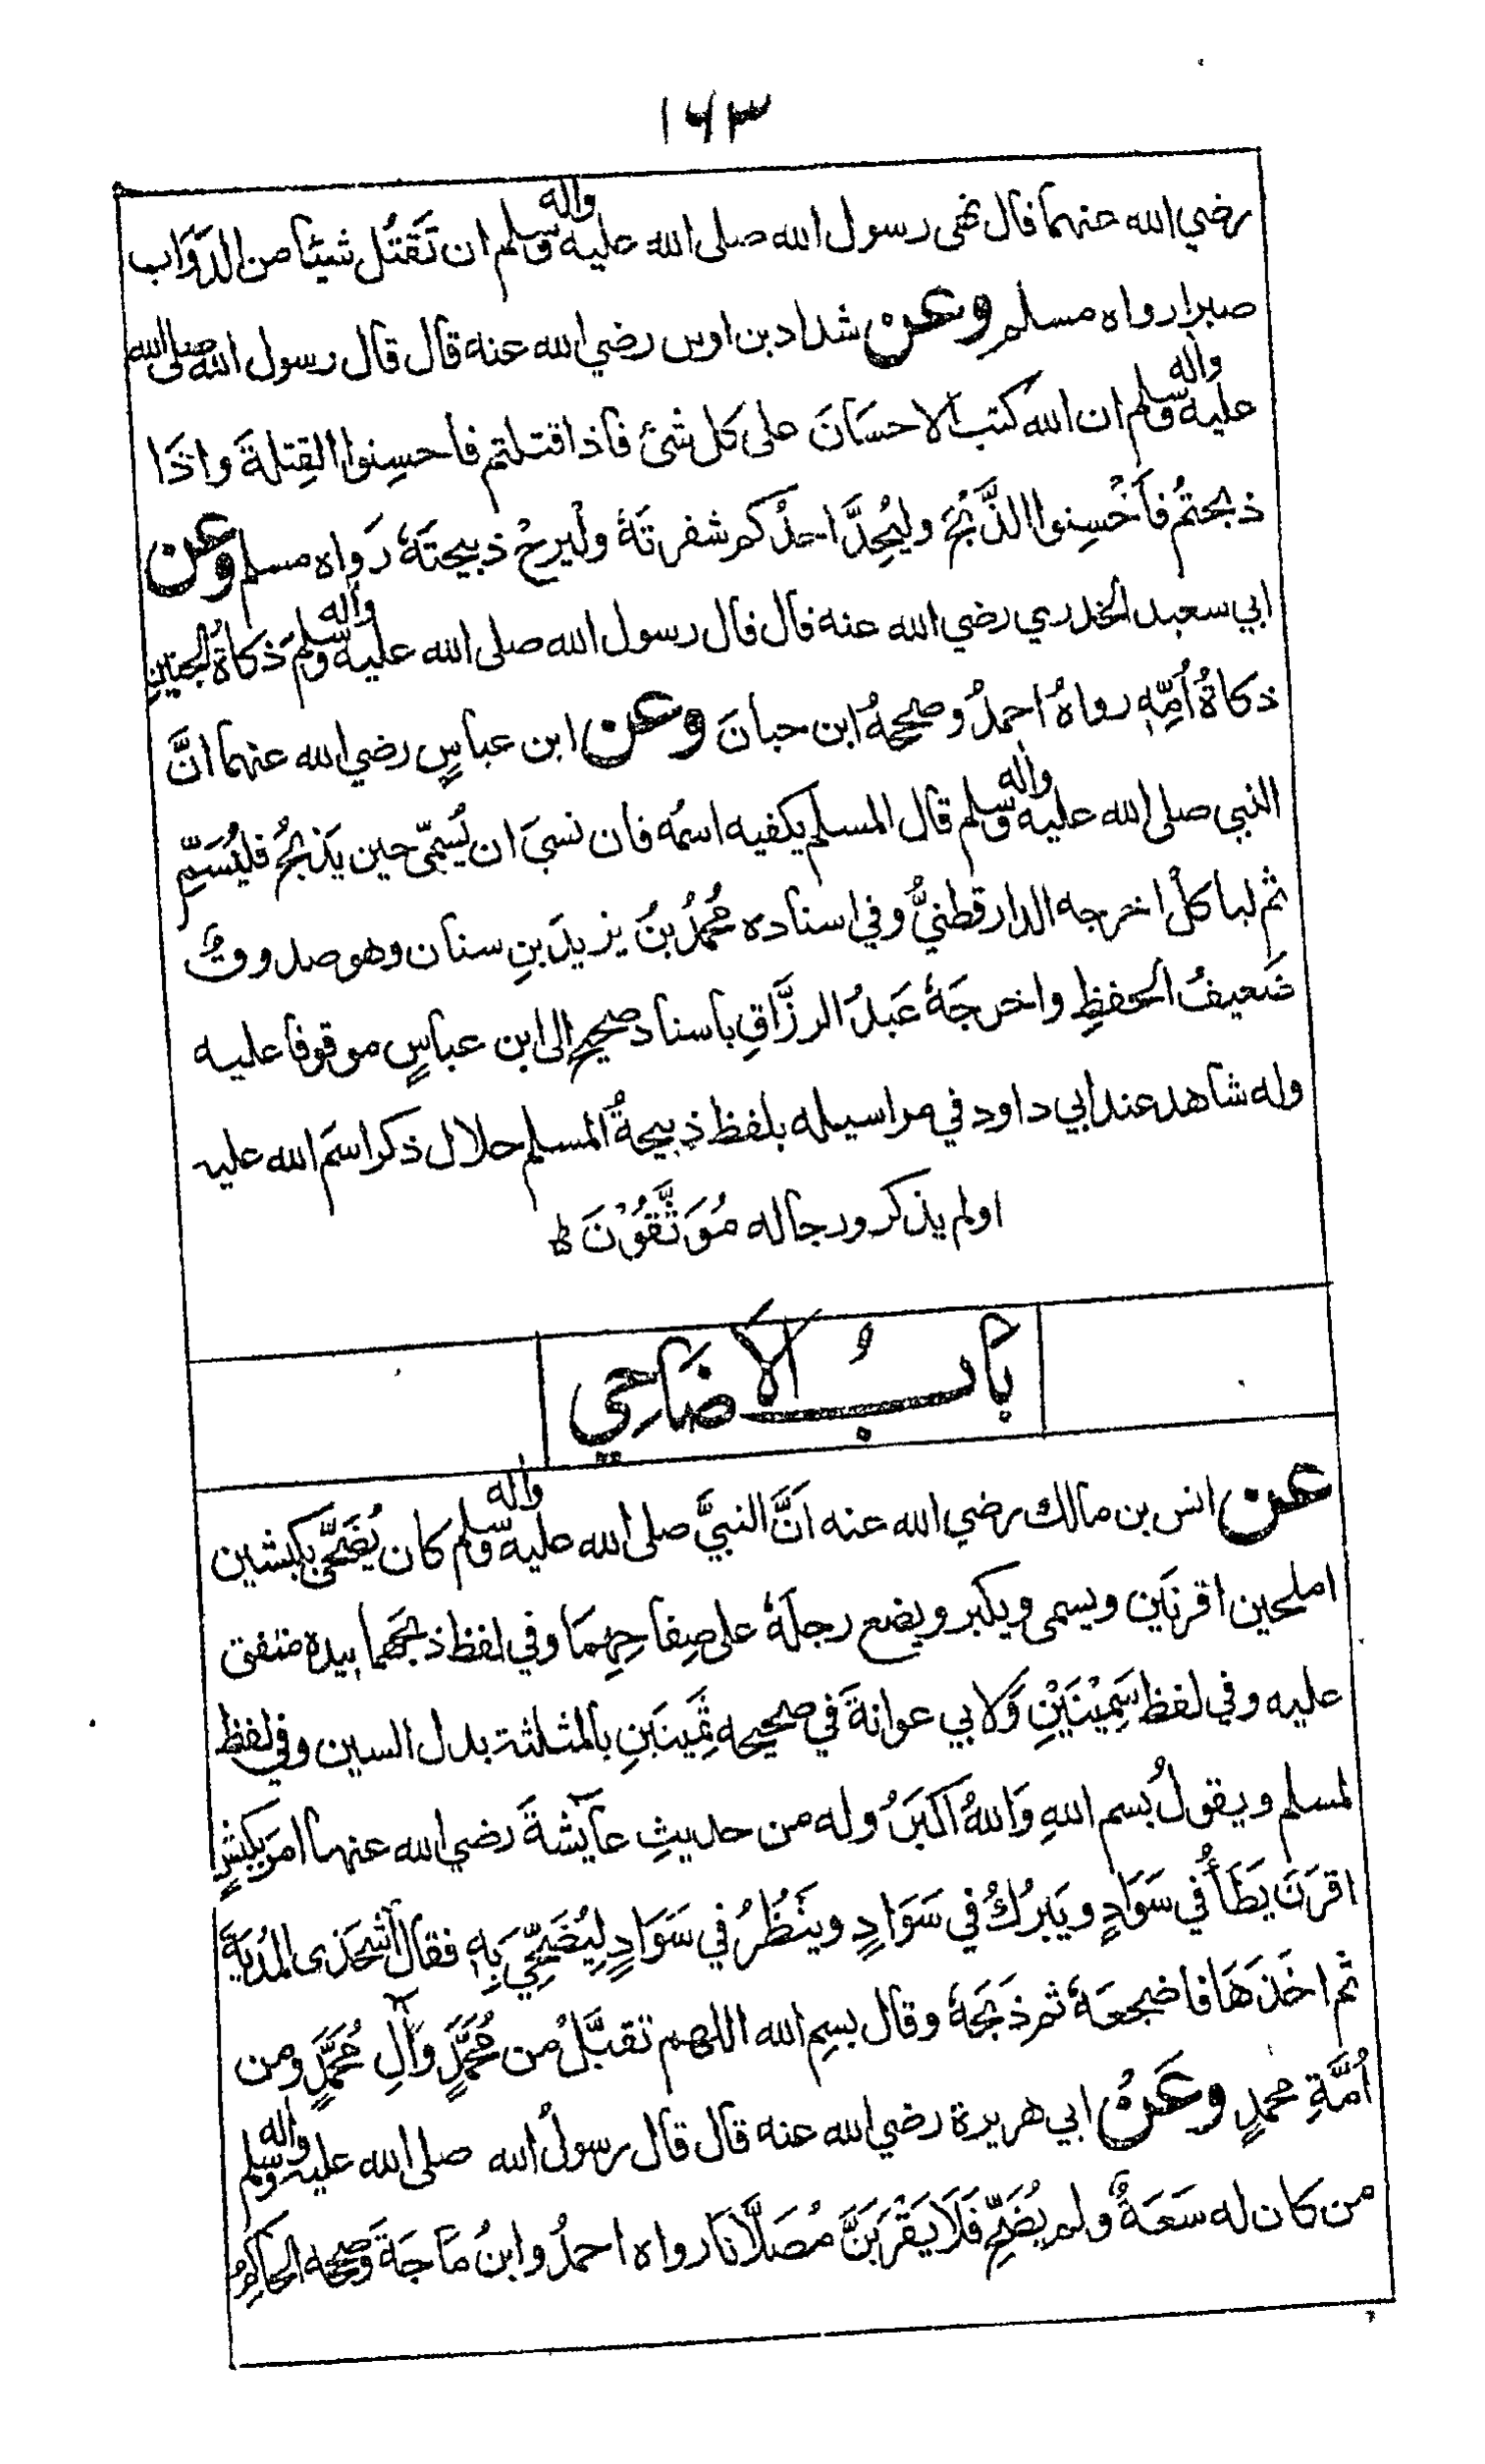 ۱۶۳
رضي الله عنهما قال نهى رسول الله صلى الله عليه وآله وسلم ان تَقتُل شيئا من الدوَاب
صبرا رواه مسلم وعن شداد بن اوس رضي الله عنه قال قال رسول الله صلى الله
عليه وآله وسلم ان الله كتب الاحسَانَ على كل شئ فاذا قتلتم فاحسِنوا القِتلةَ واذَا
ذبحتمُ فاَحْسِنوا الذَّبْحَ وليُحِدَّ احدُكم شفرتَهٗ ولْيرحْ ذبيحتَهٗ رَواه مسلم وعن
ابي سعيد الخدري رضي الله عنه قال قال رسول الله صلى الله عليه وآله وسلم ذكاةُ الجنينِ
ذكاةُ اُمِّهٖ رواهُ احمدُ وصححهُ ابن حبانَ وعن ابن عباسٍ رضي الله عنهما انَّ
النبي صلى الله عليه وآله وسلم قال المسلم يكفيه اسمُه فان نسيَ ان يُسمّى حين يَذبحُ فليُسَمِّ
ثم لياكلْ اخرجه الدارقطنيُّ وفي اسناده محُمدُ بنُ يزيدَ بنِ سنان وهو صدوقٌ
ضَعيفُ الحفظِ واخرجَهٗ عَبدُ الرزَّاقِ باسناد صحيحٍ الى ابن عباسٍ موقوفا عليه
وله شاهد عند ابي داود في مراسيله بلفظ ذبيحةُ المسلم حلال ذكر اسمَ الله عليه
اولم يذكر ورجاله مُوَثَّقُوْنَ ط
بَابُ الاَضَاحِي
عن انس بن مالك رضي الله عنه اَنَّ النبيَّ صلى الله عليه وآله وسلم كان يُضَحّى بكبشين
املحين اقرنَين ويسمى ويكبر ويضع رجلَهٗ على صِفاحِهِمَا وفي لفظ ذبحهما بيده متفق
عليه وفي لفظ سَمِيْنَيْنِ وَلابي عوانةَ في صحيحه ثمينَينِ بالمثلثة بدل السين وفي لفظ
لمسلم ويقولُ بسم اللهِ وَاللهُ اكبَرُ وله من حديثِ عآيشةَ رضي الله عنها امرَ بكبشٍ
اقرَنَ يَطَأُ في سَوَادٍ ويَبرُكُ في سَوَادٍ وينْظُرُ في سَوَادٍ لِيُضَحِّيَ بِهٖ فقال اشحذى المُديَةَ
ثم اخَذَهَا فاضجعَهٗ ثم ذَبَحَهٗ وقال بسِم الله اللهم تقبَّلْ من محُمَّدٍ وآلِ محُمَّدٍ ومن
اُمَّةِ محمدٍ وعَنْ ابي هريرة رضي الله عنه قال قال رسولُ الله صلى الله عليه وآله وسلم
من كان له سَعَةٌ ولم يُضَحِّ فَلاَ يَقْرَبَنَّ مُصَلَّانَا رواه احمدُ وابنُ مَاجَةَ وصححه الحاكمُ